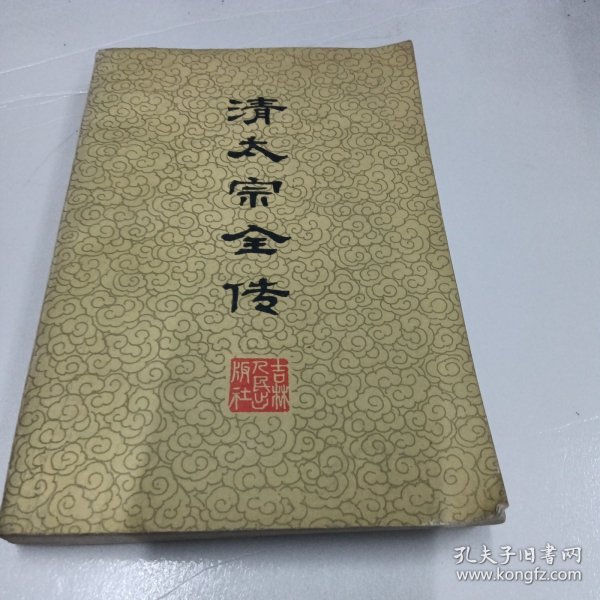 清太宗全传
吉林
人民出
版社
孔夫子旧书网
www.kongfz.com